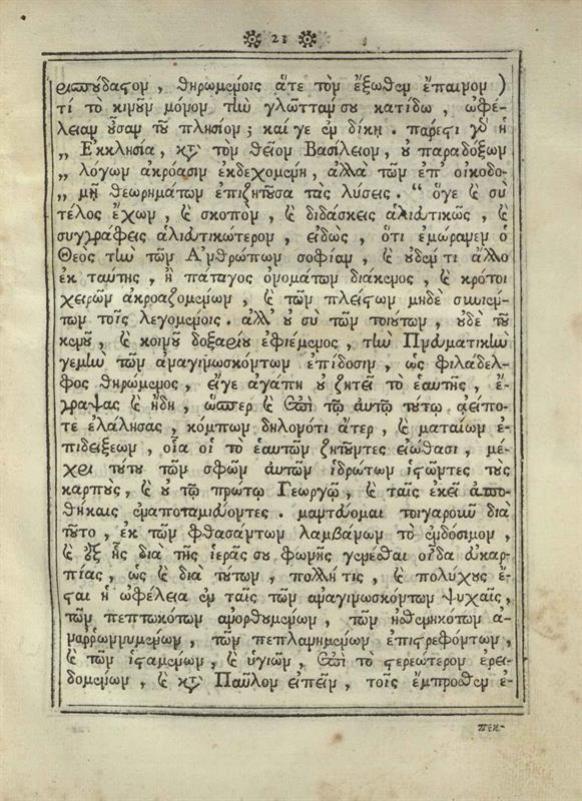 21
εὐσπούδαστον, θηρωμένοις ἅτε τὸν ἔξωθεν ἔπαινον)
τί τὸ κινοῦν μόνον τὴν γλῶτταν σου κατίδω, ὠφέ-
λειαν οὖσαν τοῦ πλησίον; καί γε ἐν δίκῃ. πάρεστι γὰρ ἡ
„ Ἐκκλησία, κατὰ τὸν θεῖον Βασίλειον, οὐ παραδόξων
„ λόγων ἀκρόασιν ἐκδεχομένη, ἀλλὰ τῶν ἐπ' οἰκοδο-
„ μῇ θεωρημάτων ἐπιζητοῦσα τὰς λύσεις. “ ὅγε καὶ σὺ
τέλος ἔχων, καὶ σκοπὸν, καὶ διδάσκεις ἁλιευτικῶς, καὶ
συγγράφεις ἁλιευτικώτερον, εἰδὼς, ὅτι ἐμώρανεν ὁ
Θεὸς τὴν τῶν Ἀνθρώπων σοφίαν, καὶ οὐδέν τι ἄλλο
ἐκ ταύτης, ἢ πάταγος ὀνομάτων διάκενος, καὶ κρότοι
χειρῶν ἀκροαζομένων, καὶ τῶν πλείστων μηδὲ συνιέν-
των τοῖς λεγομένοις. ἀλλ' οὐ σὺ τῶν τοιούτων, οὐδὲ τοῦ
κενοῦ, καὶ κοινοῦ δοξαρίου ἐφιέμενος, τὴν Πνευματικὴν
γεμὴν τῶν ἀναγινωσκόντων ἐπίδοσιν, ὡς φιλάδελ-
φος θηρώμενος, εἴγε ἀγάπη οὐ ζητεῖ τὸ ἑαυτῆς, ἔ-
γραψας καὶ ἤδη, ὥσπερ καὶ ἐπὶ τῷ αὐτῷ τούτῳ ἀείπο-
τε ἐλάλησας, κόμπων δηλονότι ἄτερ, καὶ ματαίων ἐ-
πιδείξεων, οἷα οἱ τὸ ἑαυτῶν ζητοῦντες εἰώθασι, μέ-
χρι τούτου τῶν σφῶν αὐτῶν ἱδρώτων ἱστῶντες τοὺς
καρποὺς, καὶ οὐ τῷ πρώτῳ Γεωργῷ, καὶ ταῖς ἐκεῖ ἀπο-
θήκαις ἐναποταμιεύοντες. μαντεύομαι τοιγαροῦν διὰ
τοῦτο, ἐκ τῶν φθασάντων λαμβάνων τὸ ἐνδόσιμον,
καὶ ἐξ ἧς διὰ τῆς ἱερᾶς σου φωνῆς γενέσθαι οἶδα εὐκαρ-
πίας, ὡς καὶ διὰ τούτων, πολλή τις, καὶ πολύχους ἔ-
σται ἡ ὠφέλεια ἐν ταῖς τῶν ἀναγινωσκόντων ψυχαῖς,
τῶν πεπτωκότων ἀνορθουμένων, τῶν ἠσθενηκότων ἀ-
ναῤῥωννυμένων, τῶν πεπλανημένων ἐπιστρεφόντων,
καὶ τῶν ἱσταμένων, καὶ ὑγιῶν, ἐπὶ τὸ στερεώτερον ἐρει-
δομένων, καὶ κατὰ Παῦλον εἰπεῖν, τοῖς ἔμπροσθεν ἐ-
πεκ-